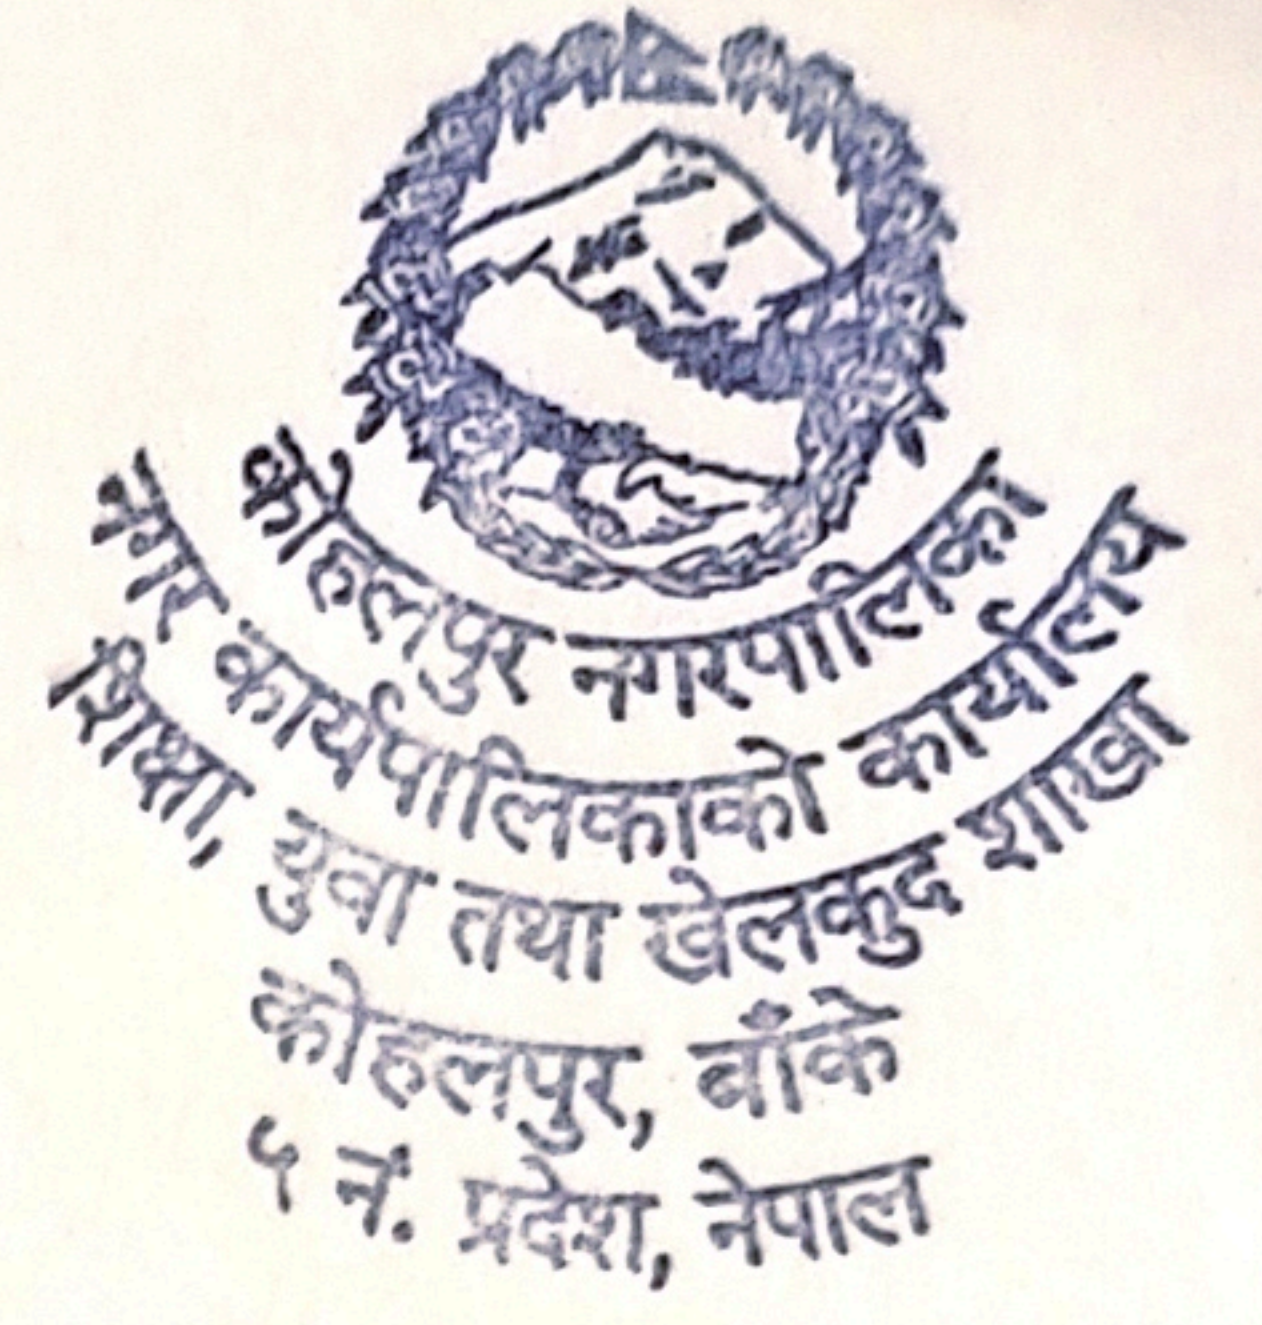 कोहलपुर नगरपालिका
नगर कार्यपालिकाको कार्यालय
शिक्षा, युवा तथा खेलकुद शाखा
कोहलपुर, बाँके
५ नं. प्रदेश, नेपाल